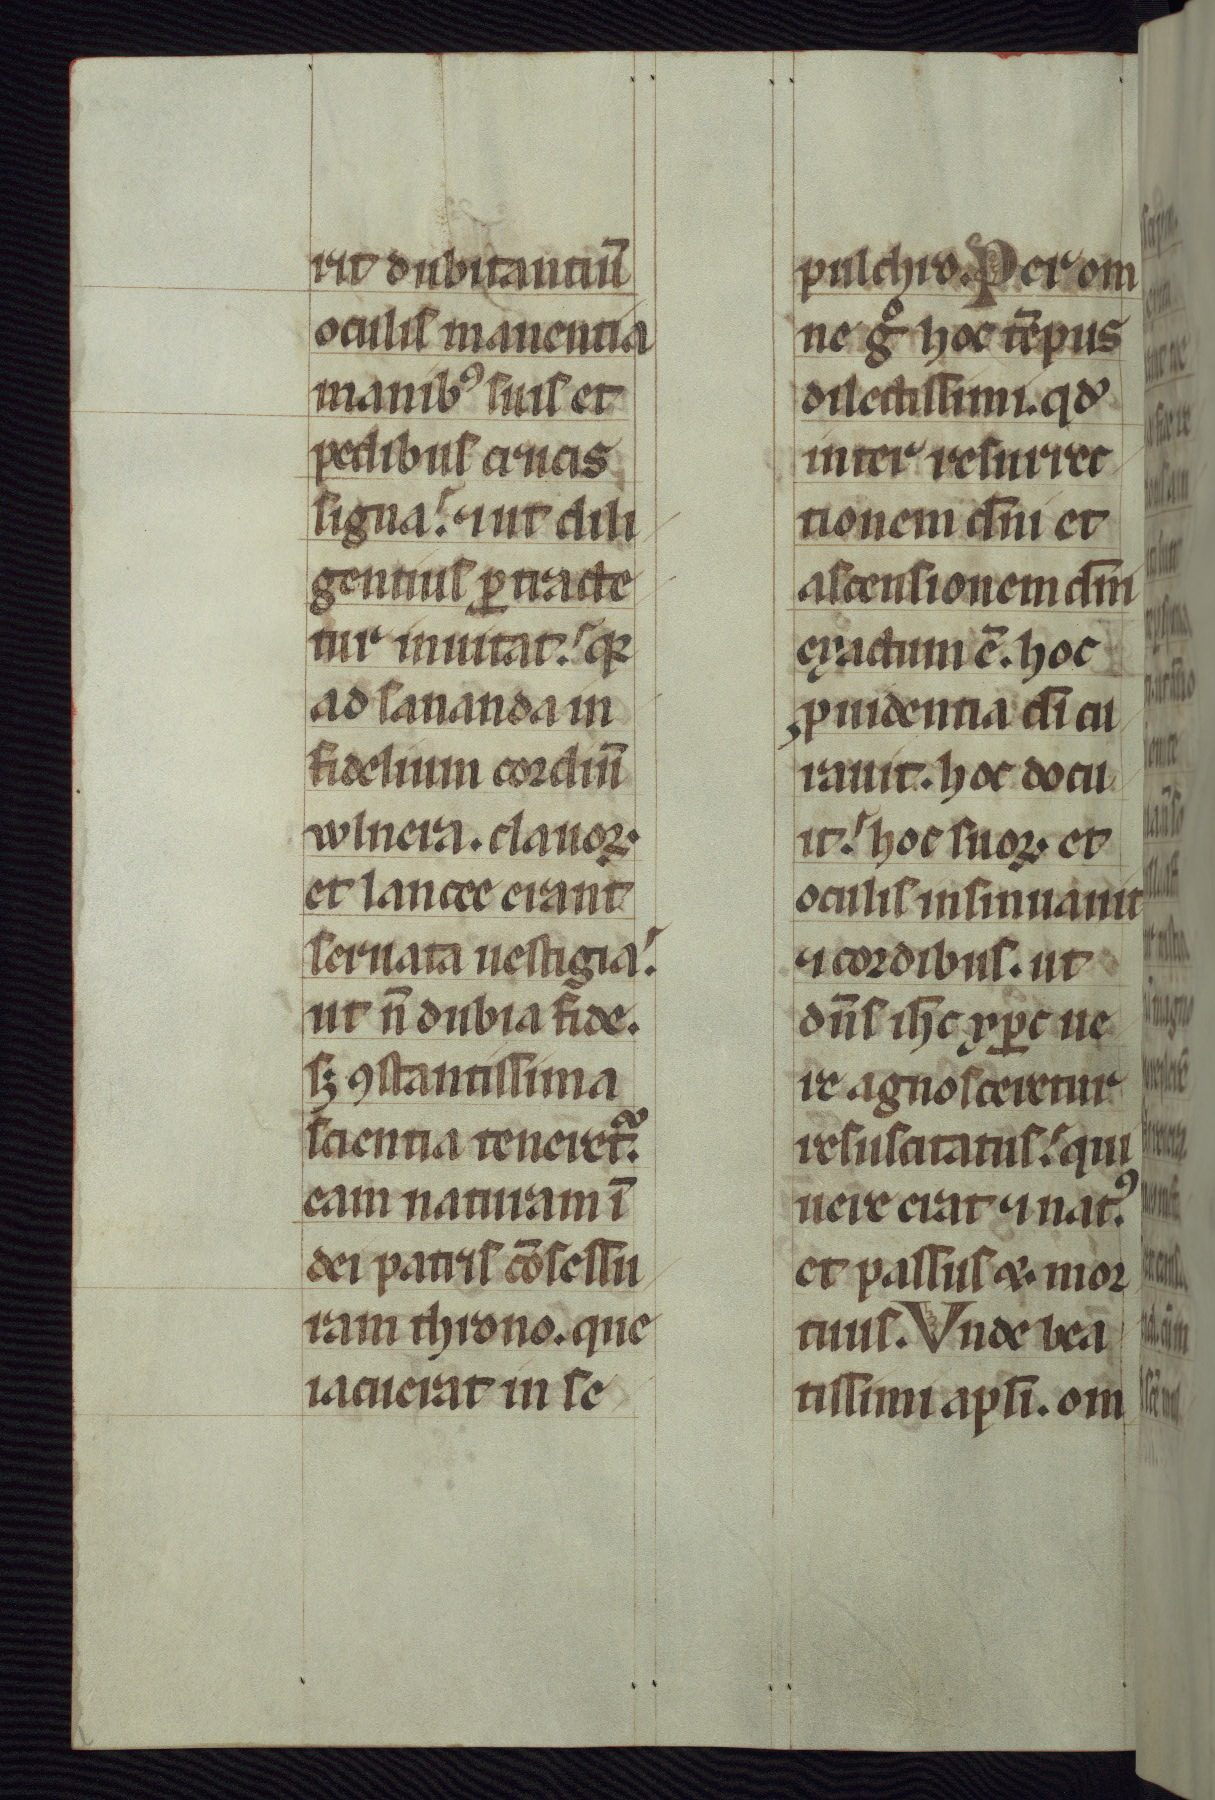 rit dubitantiū
oculis manentia
manibꝰ suis et
pedibus crucis
signa. ⁊ ut dili
gentius ꝑtracte
tur inuitat. qꝛ
ad sananda in
fidelium cordiū
wlnera. clauoꝝ
et lancee erant
seruata uestigia.
ut n̄ dubia fide.
sꝫ ꝯstantissima
scientia teneret᷑.
eam naturam ī
dei patris cōsessu
ram throno. que
iacuerat in se
pulchro. Per om
ne gͦ hoc tēpus
dilectissimi. qd̓
inter resurrec
tionem dn̄i et
ascensionem dn̄i
exactum ē. hoc
ꝓuidentia dī cu
rauit. hoc docu
it. hoc suoꝝ et
oculis insinuauit
⁊ cordibus. ut
dn̄s ih̄c xp̄c ue
re agnosceretur
resuscitatus. qui
uere erat ⁊ natꝰ.
et passus & mor
tuus. Vnde bea
tissimi apl̄i. om